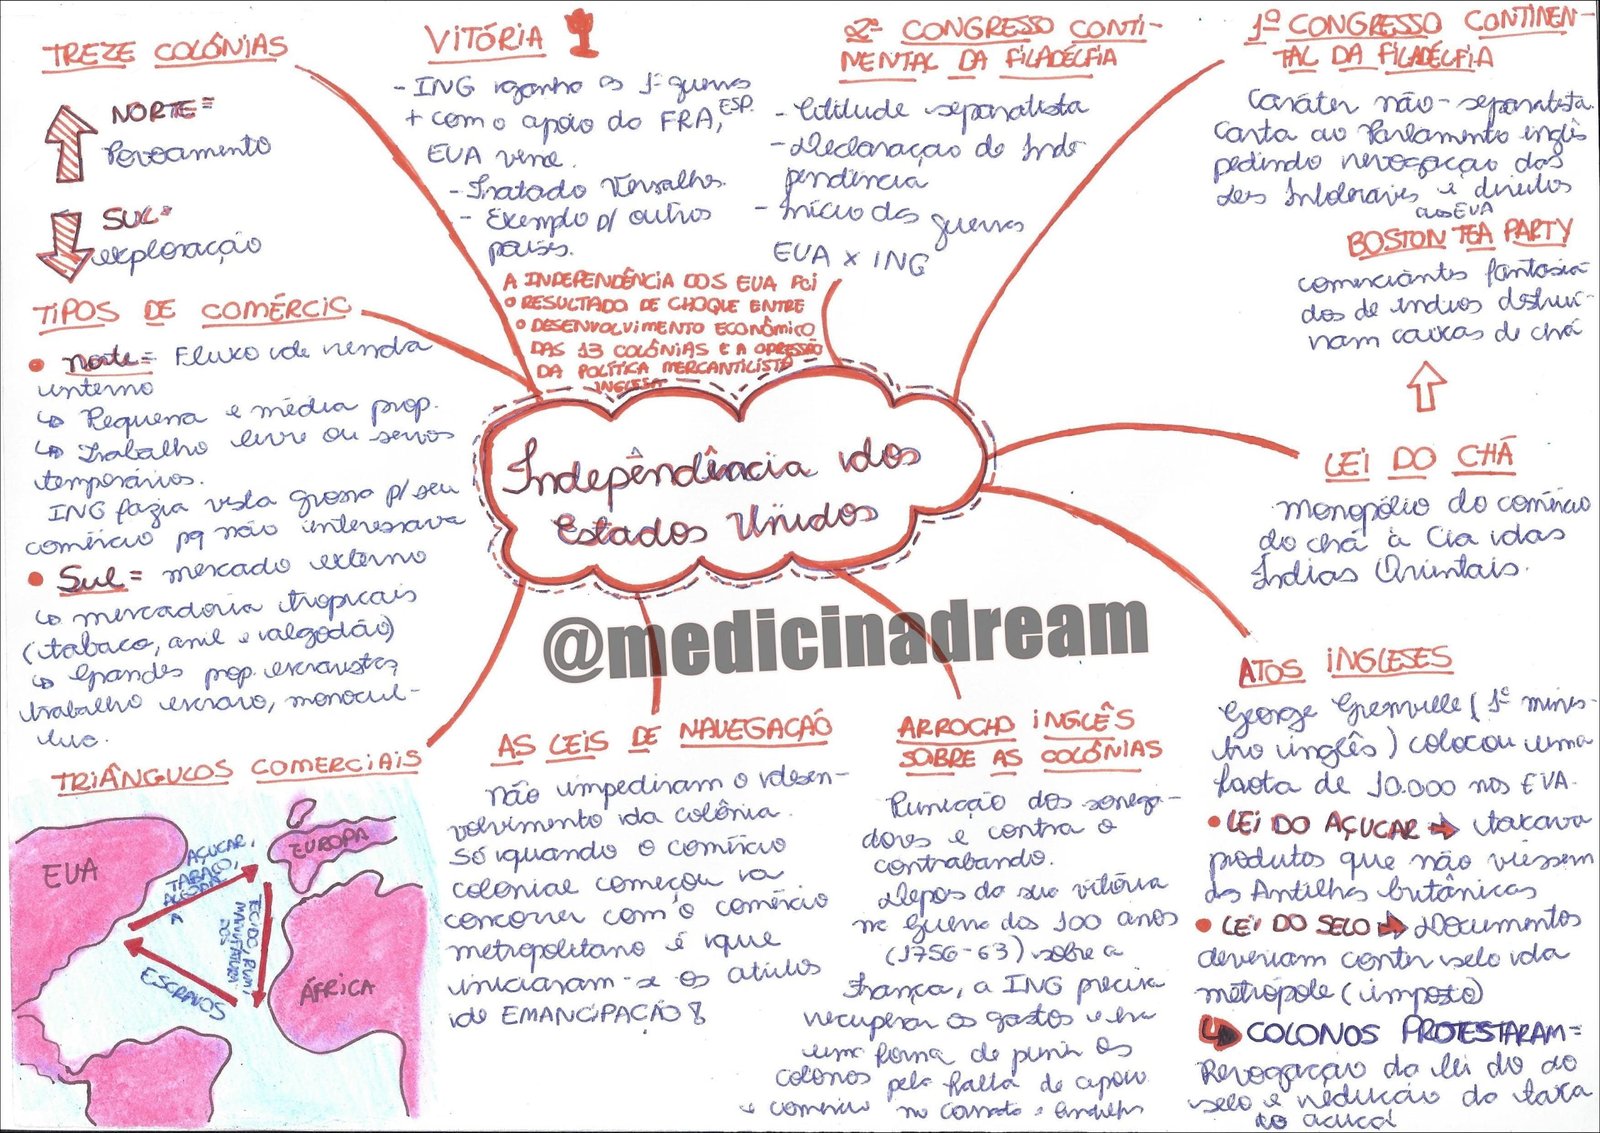 TREZE COLÔNIAS
NORTE=
Povoamento
SUL=
exploração
TIPOS DE COMÉRCIO
• Norte= Fluxo de venda
interno
↳ Pequena e média prop.
↳ Trabalho livre ou servos
temporários.
ING fazia vista grossa p/ seu
comércio pq não interessava
• Sul= mercado externo
↳ mercadoria tropicais
(tabaco, anil e algodão)
↳ Grandes prop. escravistas,
trabalho escravo, monocul-
tivo.
TRIÂNGULOS COMERCIAIS
EUA
EUROPA
ÁFRICA
AÇUCAR,
TABACO,
TECIDO, RUM,
MANUFATURA-
DOS
ESCRAVOS
VITÓRIA
- ING ganha as 1ª guerras
+ com o apoio da FRA, ESP.
EUA vence.
- Tratado Versalhes.
- Exemplo p/ outros
países.
2º CONGRESSO CONTI-
NENTAL DA FILADÉLFIA
- Atitude separatista
- Declaração de Inde
pendência
- Início das guerras
EUA x ING
1º CONGRESSO CONTINEN-
TAL DA FILADÉLFIA
Caráter não-separatista.
Carta ao Parlamento inglês
pedindo revogação das
Leis Intoleráveis e direitos
aos EUA
BOSTON TEA PARTY
comerciantes fantasia-
dos de índios destruí-
ram caixas de chá
LEI DO CHÁ
Monopólio do comércio
do chá à Cia das
Índias Orientais.
A INDEPENDÊNCIA DOS EUA FOI
O RESULTADO DE CHOQUE ENTRE
O DESENVOLVIMENTO ECONÔMICO
DAS 13 COLÔNIAS E A OPRESSÃO
DA POLÍTICA MERCANTILISTA
INGLESA
Independência dos
Estados Unidos
@medicinadream
AS LEIS DE NAVEGAÇÃO
Não impediram o desen-
volvimento da colônia.
Só quando o comércio
colonial começou a
concorrer com o comércio
metropolitano é que
iniciaram-se os atritos
de EMANCIPAÇÃO
ARROCHO INGLÊS
SOBRE AS COLÔNIAS
Punição dos sonega-
dores e contra o
contrabando.
Depois da sua vitória
na Guerra dos 100 anos
(1756-63) sobre a
França, a ING precisa
recuperar os gastos e era
uma forma de punir os
colonos pela falta de apoio
e comércio no Canadá e Antilhas
ATOS INGLESES
George Grenville (1º minis-
tro inglês) colocou uma
frota de 10.000 nos EUA.
• LEI DO AÇUCAR → taxava
produtos que não viessem
das Antilhas britânicas
• LEI DO SELO → Documentos
deveriam conter selo da
metrópole (imposto)
↳ COLONOS PROTESTARAM=
Revogação da lei do do
selo e redução da taxa
do açucar